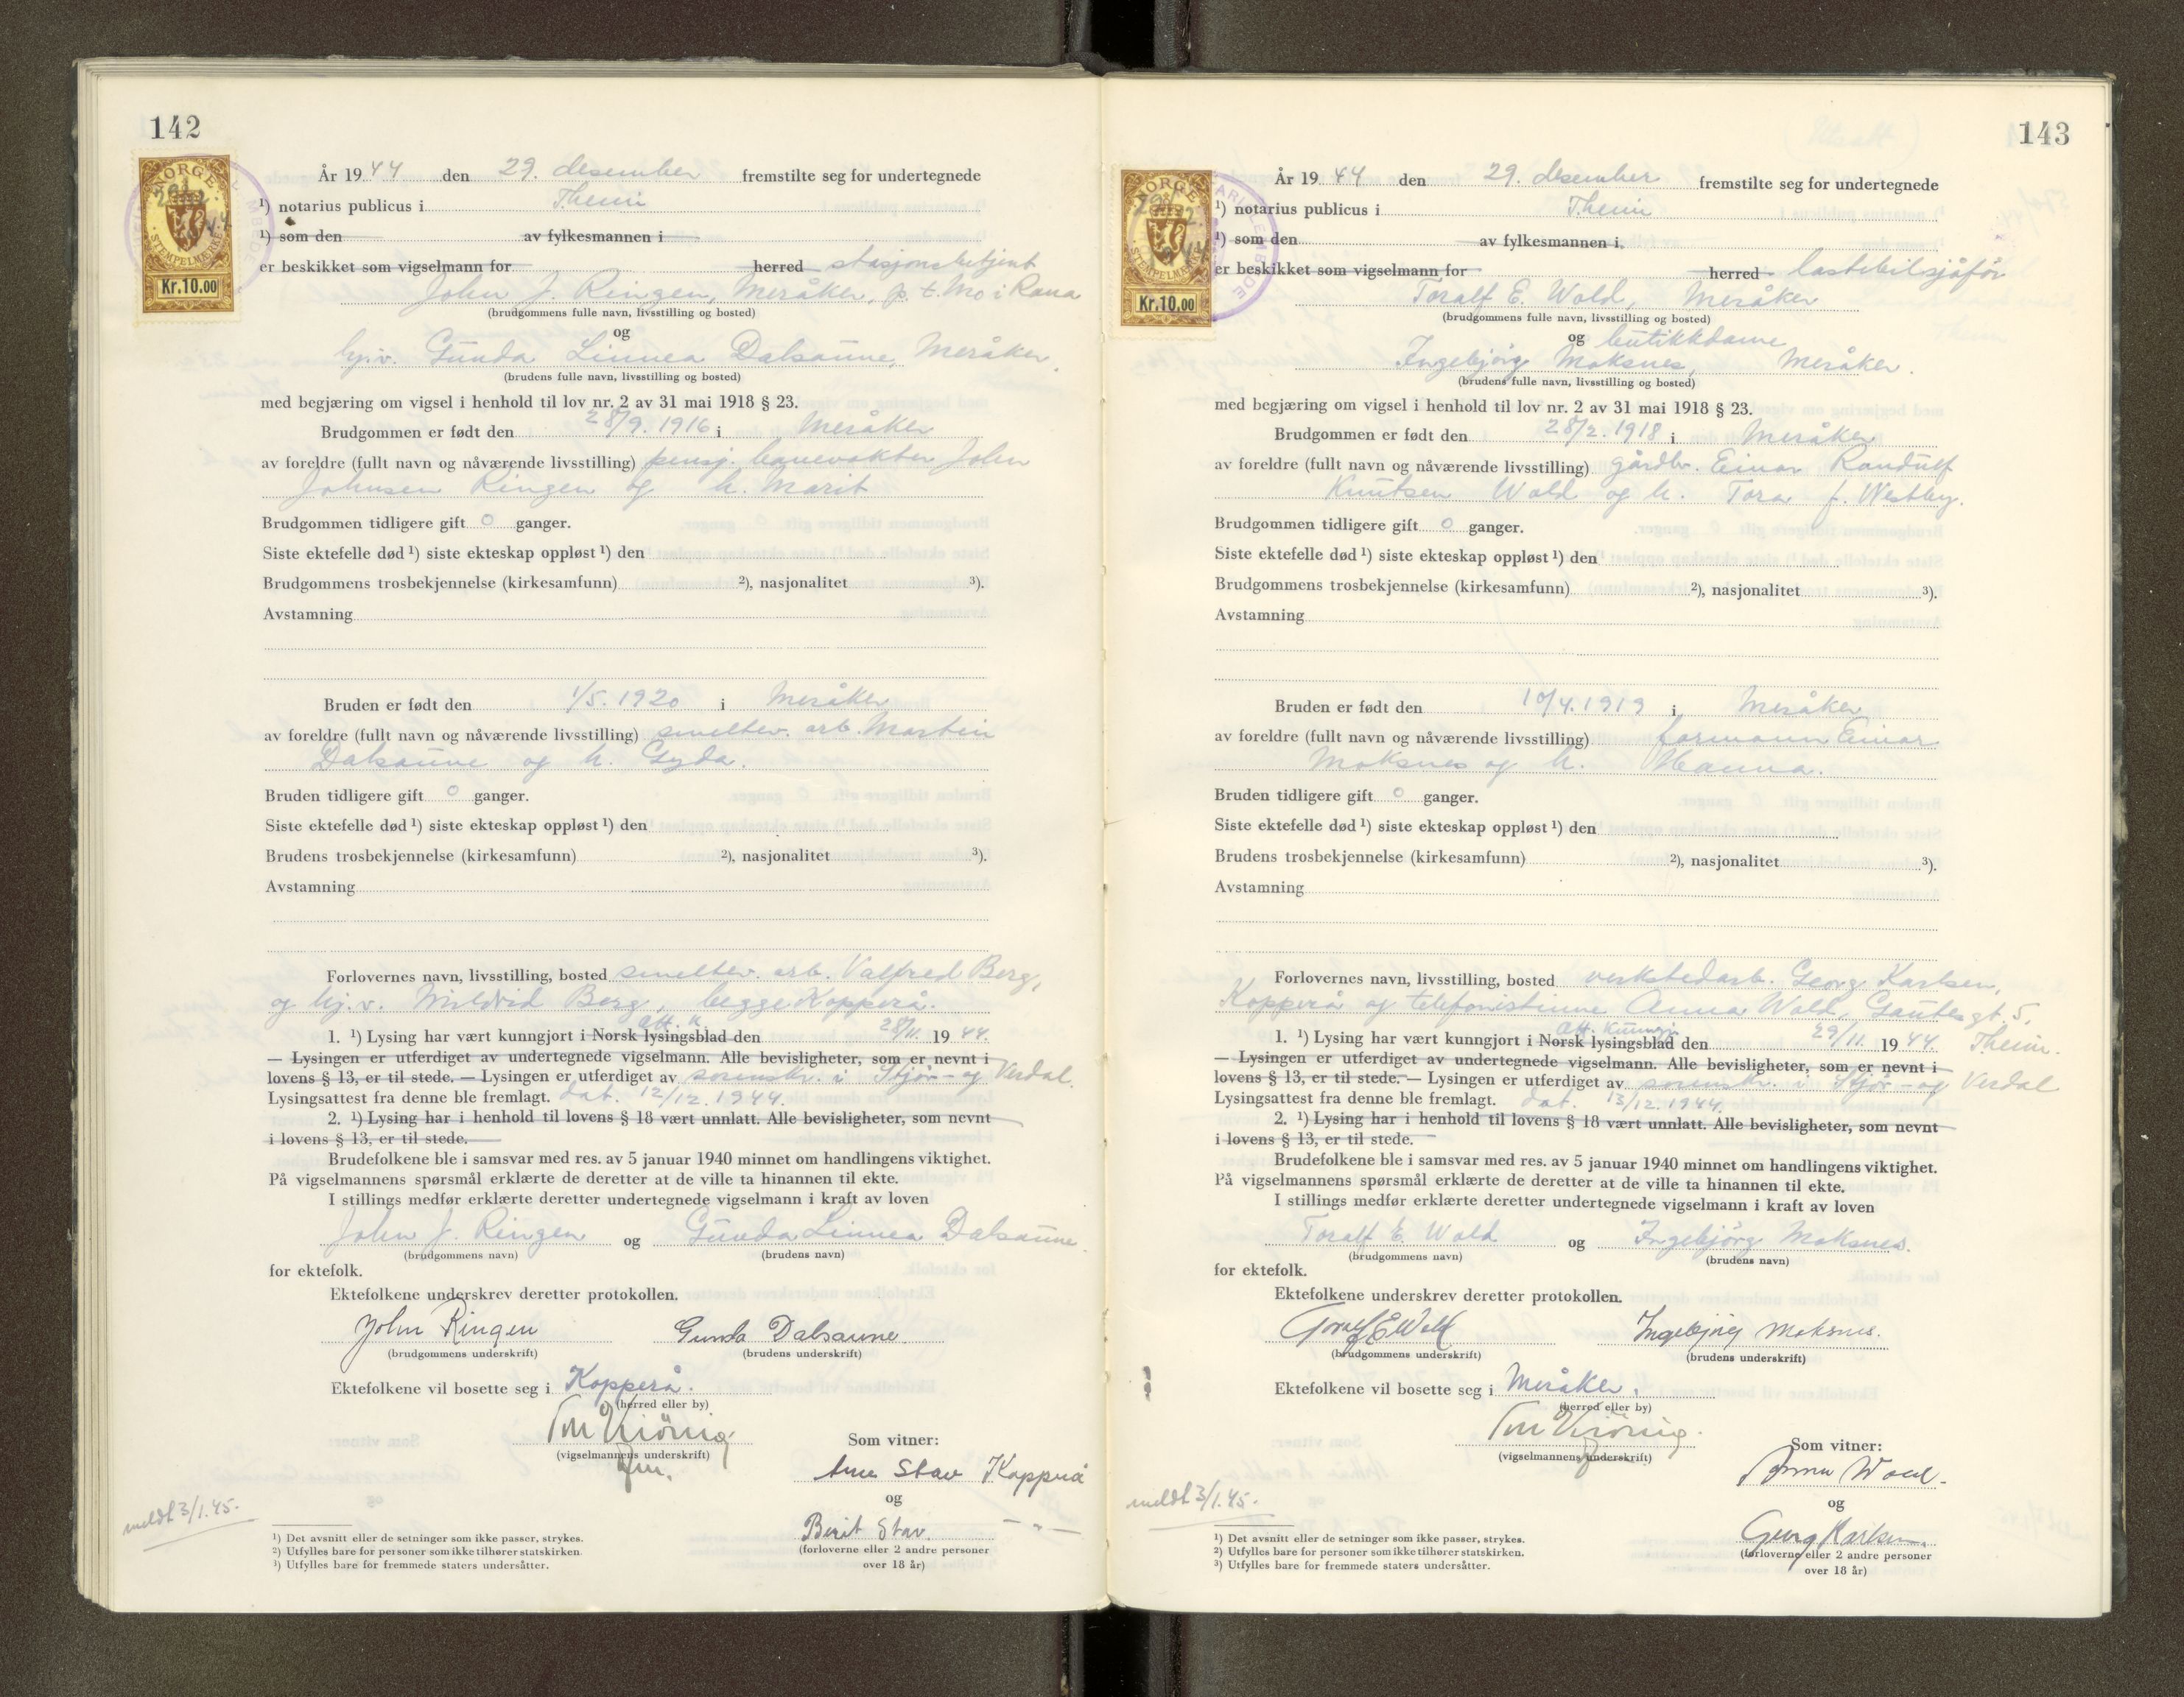 142
NORGE
STEMPELMERKE
Kr.10.00
År 1944 den 29. desember fremstilte seg for undertegnede
¹) notarius publicus i Thеim
¹) som den av fylkesmannen i
er beskikket som vigselmann for herred stasjonsbetjent
John J. Ringen, Meråker, p. t. Mo i Rana
(brudgommens fulle navn, livsstilling og bosted)
og
hj.v. Gunda Linnea Dalsaune, Meråker.
(brudens fulle navn, livsstilling og bosted)
med begjæring om vigsel i henhold til lov nr. 2 av 31 mai 1918 § 23.
Brudgommen er født den 28/9. 1916 i Meråker
av foreldre (fullt navn og nåværende livsstilling) pensj. banevokter John
Johnsen Ringen og h. Marit
Brudgommen tidligere gift 0 ganger.
Siste ektefelle død ¹) siste ekteskap oppløst ¹) den
Brudgommens trosbekjennelse (kirkesamfunn) ²), nasjonalitet ³).
Avstamning
Bruden er født den 1/5. 1920 i Meråker
av foreldre (fullt navn og nåværende livsstilling) smeltev. arb. Martin
Dalsaune og h. Gyda.
Bruden tidligere gift 0 ganger.
Siste ektefelle død ¹) siste ekteskap oppløst ¹) den
Brudens trosbekjennelse (kirkesamfunn) ²), nasjonalitet ³).
Avstamning
Forlovernes navn, livsstilling, bosted smeltev. arb. Valfred Berg,
og hj.v. Mildrid Berg, begge Kopperå.
att. k
1. ¹) Lysing har vært kunngjort i Norsk lysingsblad den 28/11. 1944.
— Lysingen er utferdiget av undertegnede vigselmann. Alle bevisligheter, som er nevnt i
lovens § 13, er til stede. — Lysingen er utferdiget av sorenskr. i Stjør- og Verdal.
Lysingsattest fra denne ble fremlagt. dat. 12/12. 1944.
2. ¹) Lysing har i henhold til lovens § 18 vært unnlatt. Alle bevisligheter, som nevnt
i lovens § 13, er til stede.
Brudefolkene ble i samsvar med res. av 5 januar 1940 minnet om handlingens viktighet.
På vigselmannens spørsmål erklærte de deretter at de ville ta hinannen til ekte.
I stillings medfør erklærte deretter undertegnede vigselmann i kraft av loven
John J. Ringen og Gunda Linnea Dalsaune.
(brudgommens navn) (brudens navn)
for ektefolk.
Ektefolkene underskrev deretter protokollen.
John Ringen Gunda Dalsaune
(brudgommens underskrift) (brudens underskrift)
Ektefolkene vil bosette seg i Kopperå.
(herred eller by)
(vigselmannens underskrift)
fm.
Som vitner:
Arne Stav Kopperå
og
Berit Stav — " —
(forloverne eller 2 andre personer
over 18 år)
meldt 3/1.45.
¹) Det avsnitt eller de setninger som ikke passer, strykes.
²) Utfylles bare for personer som ikke tilhører statskirken.
³) Utfylles bare for fremmede staters undersåtter.
143
NORGE
STEMPELMERKE
Kr.10.00
År 1944 den 29. desember fremstilte seg for undertegnede
¹) notarius publicus i Theim
¹) som den av fylkesmannen i
er beskikket som vigselmann for herred lastebilsjåfør
Toralf E. Wold, Meråker
(brudgommens fulle navn, livsstilling og bosted)
og butikkdame
Ingebjørg Moksnes, Meråker.
(brudens fulle navn, livsstilling og bosted)
med begjæring om vigsel i henhold til lov nr. 2 av 31 mai 1918 § 23.
Brudgommen er født den 28/2. 1918 i Meråker
av foreldre (fullt navn og nåværende livsstilling) gårdbr. Einar Randulf
Knutsen Wold og h. Tora f. Westby.
Brudgommen tidligere gift 0 ganger.
Siste ektefelle død ¹) siste ekteskap oppløst ¹) den
Brudgommens trosbekjennelse (kirkesamfunn) ²), nasjonalitet ³).
Avstamning
Bruden er født den 10/4. 1919 i Meråker
av foreldre (fullt navn og nåværende livsstilling) formann Einar
Moksnes og h. Hanna.
Bruden tidligere gift 0 ganger.
Siste ektefelle død ¹) siste ekteskap oppløst ¹) den
Brudens trosbekjennelse (kirkesamfunn) ²), nasjonalitet ³).
Avstamning
Forlovernes navn, livsstilling, bosted verkstedarb. Georg Karlsen,
Kopperå og telefonistinne Anna Wold, Gautes gt. 5,
att. kunngj.
1. ¹) Lysing har vært kunngjort i Norsk lysingsblad den 29/11. 1944. Theim.
— Lysingen er utferdiget av undertegnede vigselmann. Alle bevisligheter, som er nevnt i
lovens § 13, er til stede. — Lysingen er utferdiget av sorenskr. i Stjør- og Verdal
Lysingsattest fra denne ble fremlagt. dat. 13/12. 1944.
2. ¹) Lysing har i henhold til lovens § 18 vært unnlatt. Alle bevisligheter, som nevnt
i lovens § 13, er til stede.
Brudefolkene ble i samsvar med res. av 5 januar 1940 minnet om handlingens viktighet.
På vigselmannens spørsmål erklærte de deretter at de ville ta hinannen til ekte.
I stillings medfør erklærte deretter undertegnede vigselmann i kraft av loven
Toralf E. Wold og Ingebjørg Moksnes.
(brudgommens navn) (brudens navn)
for ektefolk.
Ektefolkene underskrev deretter protokollen.
Toralf E Wold Ingebjørg Moksnes.
(brudgommens underskrift) (brudens underskrift)
Ektefolkene vil bosette seg i Meråker.
(herred eller by)
(vigselmannens underskrift)
Som vitner:
Anna Wold.
og
Georg Karlsen.
(forloverne eller 2 andre personer
over 18 år)
meldt 3/1.45.
¹) Det avsnitt eller de setninger som ikke passer, strykes.
²) Utfylles bare for personer som ikke tilhører statskirken.
³) Utfylles bare for fremmede staters undersåtter.